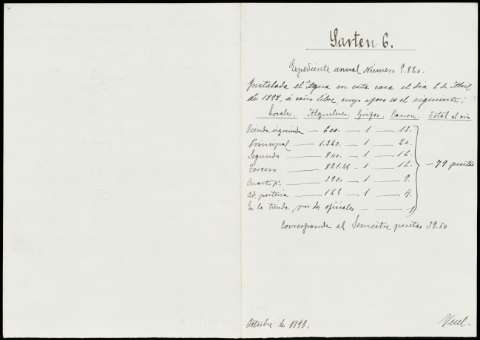 Sarten 6.
Expediente annual Número 9.820.
Instalada el Agua en esta casa el dia 6 de Abril
de 1898, á caño libre cuyo aforo es el siguiente:
Locales Alquileres Grifos Canon Total al año
Tienda izquierda 600. 1 12.
Principal 1.260. 1 20.
Segundo 900. 1 16.
Tercero 1 12.
Cuarto 390. 1 9.
Id. porteria 168 1 9.
En la tienda por dos oficiales 1
79 pesetas
Corresponde al Semestre pesetas 39.50
Octubre de 1898.